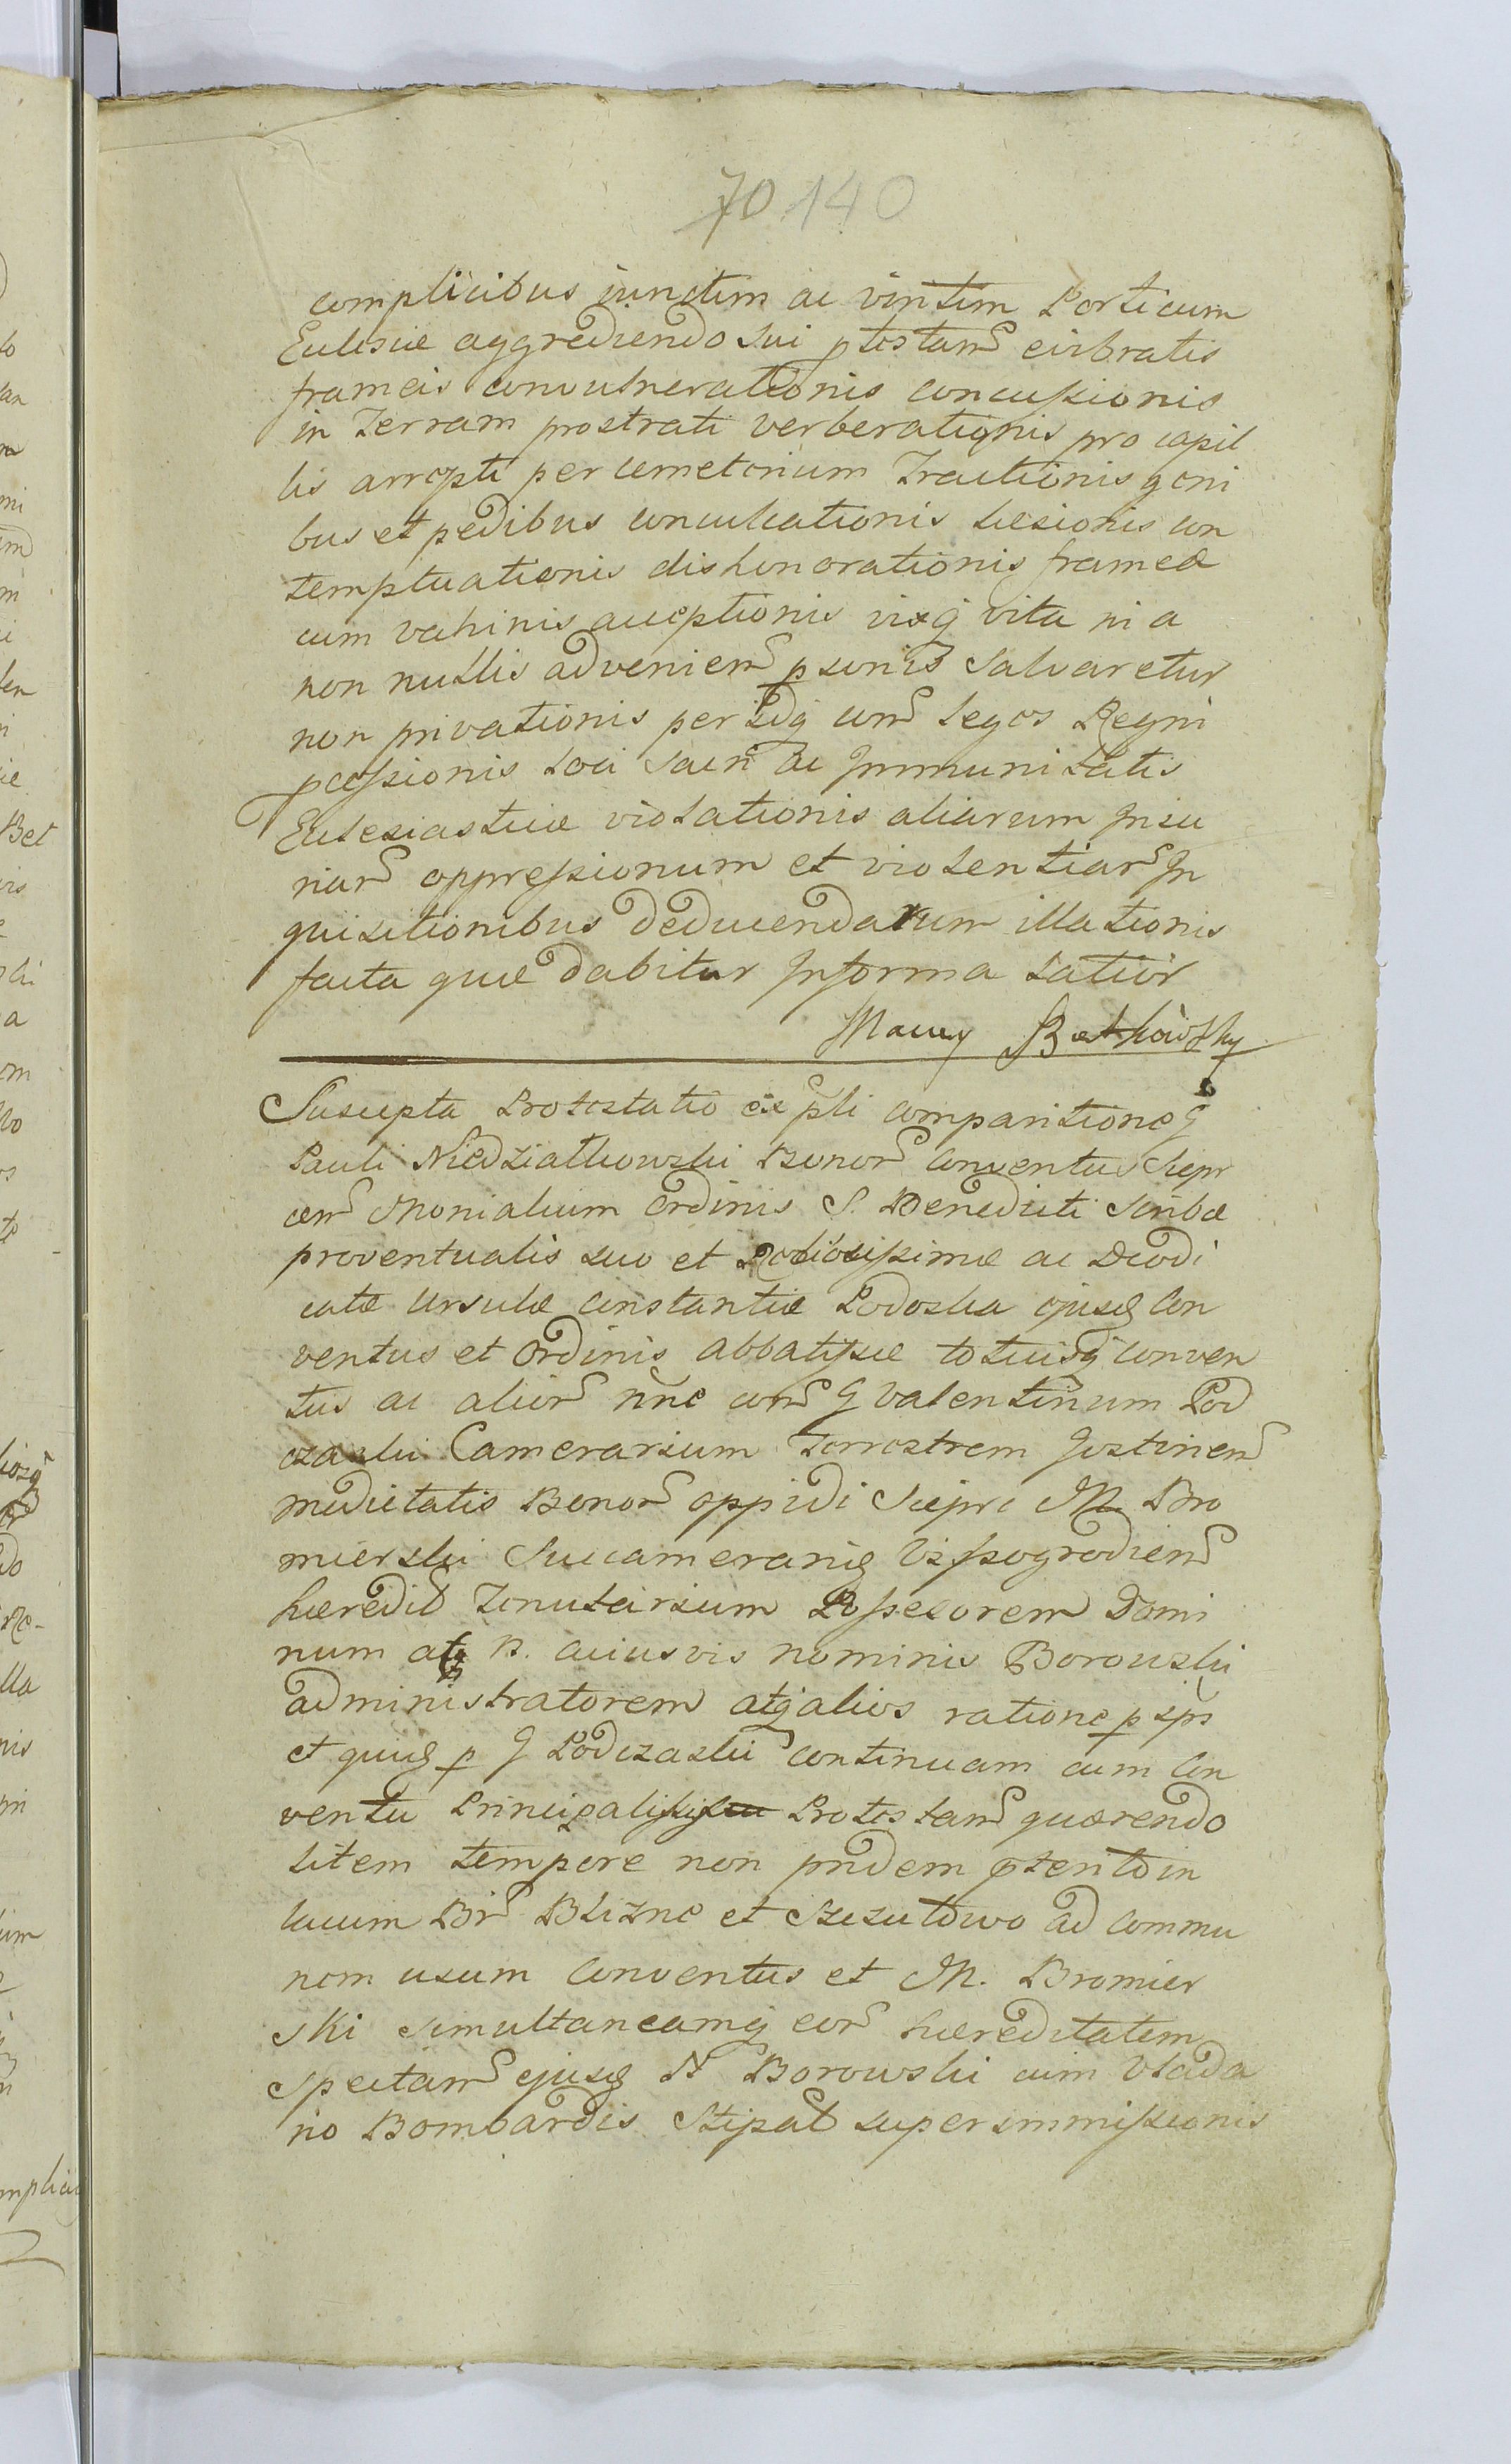 70 140
complicibus iunctim ac vintim Porticum
Ecclesiæ aggrediendo sui ptestans evibratis
frameis convulnerationis concussionis
in Terram prostrati verberationis pro capil
lis arrepti per cemeterium Tractionis geni
bus et pedibus conculcationis læsionis con
temptuationis dishonorationis frameæ
cum vahinis acceptionis vixq vita ni a
non nullis advenien psonis salvaretur
non privationis per idq con leges Regni
pcessionis loci sacri ac Immunitatis
Ecclesiasticæ violationis aliarum Iniu
riar oppressionum et violentiar In
quisitionibus deducendarum illationis
facta quæ dabitur Informa latior
Maciey Betkowsky
Suscepta Protestatio ex psli comparitione G
Pauli Niedzialkowski Bonor Conventus Siepr
cen Monialium Ordinis S. Benedicti Scribæ
proventualis suo et Reliosissimæ ac Deodi
catæ Ursulæ Constantiæ Podoska ejusq Con
ventus et Ordinis Abbatissæ totiusq conven
tus ac alior nne con G Valentinum Pod
czaski Camerarium Terrestrem Gostinen
medietatis Bonor oppidi Siepre M. Bro
mierski Succamerariq Vissogrodien
hæredit Tenutarium Possesorem Domi
num atq N. cuiusvis nominis Borowski
administratorem atq alios ratione p ips
et quiq p G Podczaski continuam cum Con
ventu Principali Protestan quærendo
litem tempore non pridem ptento in
lucum Br Blizne et Szczutowo ad commu
nem usum Conventus et M. Bromier
ski simultaneamq eor hæreditatem
spectan ejusq N Borowski cum Vlada
rio Bombardis Stipat superimmissionis